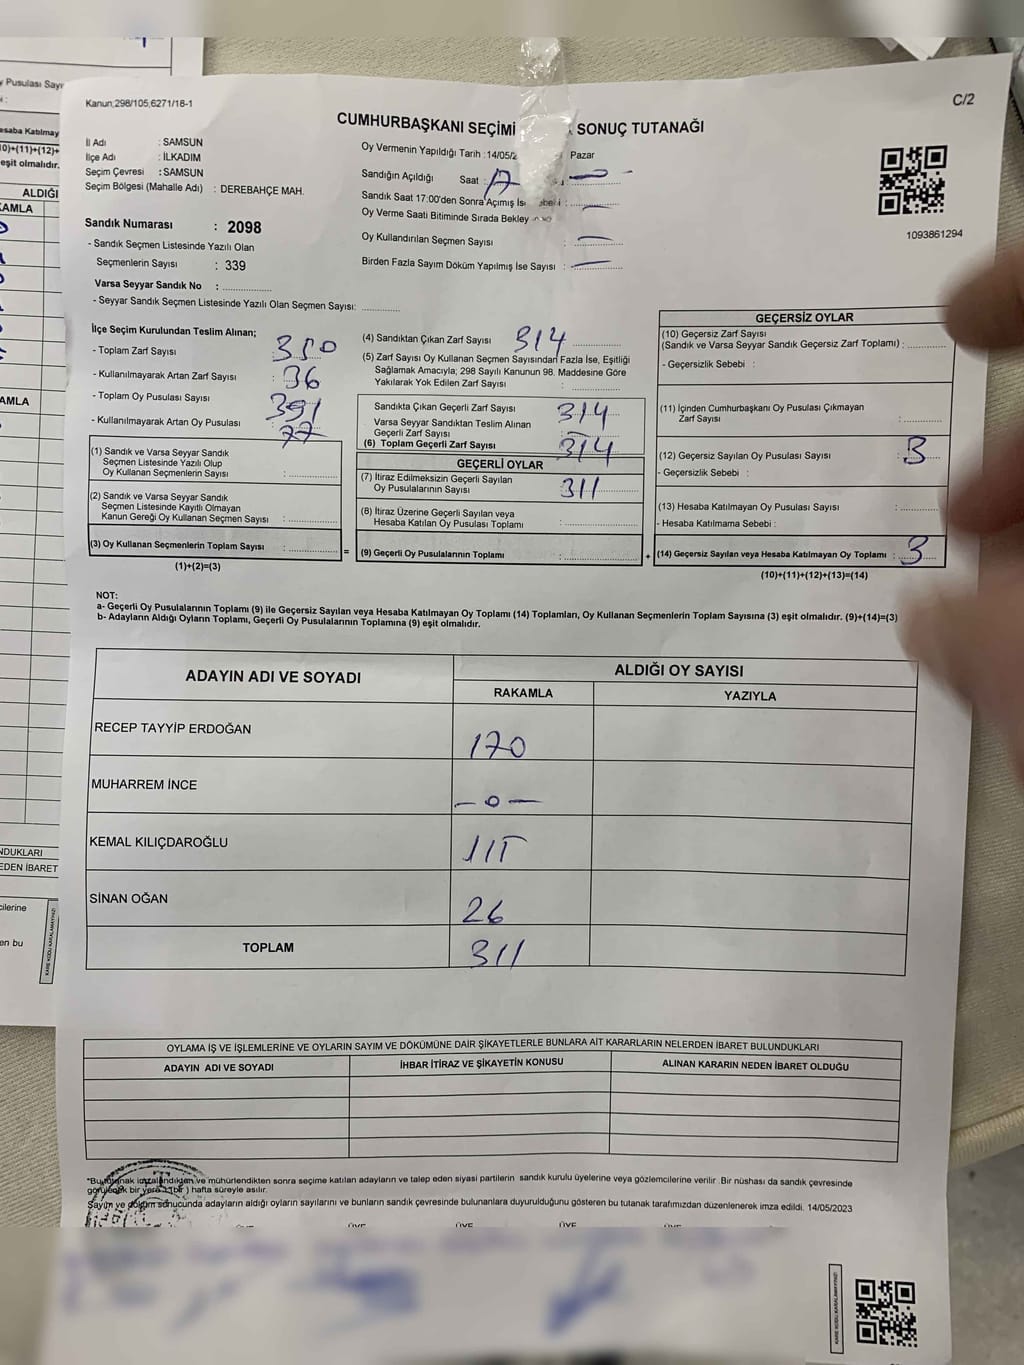 Kanun;298/105;6271/18-1
C/2
CUMHURBAŞKANI SEÇİMİ SONUÇ TUTANAĞI
İl Adı : SAMSUN
İlçe Adı : İLKADIM
Seçim Çevresi : SAMSUN
Seçim Bölgesi (Mahalle Adı) : DEREBAHÇE MAH.
Sandık Numarası : 2098
- Sandık Seçmen Listesinde Yazılı Olan
Seçmenlerin Sayısı : 339
Varsa Seyyar Sandık No : ..............
- Seyyar Sandık Seçmen Listesinde Yazılı Olan Seçmen Sayısı: ............
Oy Vermenin Yapıldığı Tarih : 14/05/2 Pazar
Sandığın Açıldığı Saat : 17
Sandık Saat 17:00'den Sonra Açımış İse
Oy Verme Saati Bitiminde Sırada Bekley
Oy Kullandırılan Seçmen Sayısı : —
Birden Fazla Sayım Döküm Yapılmış İse Sayısı : —
1093861294
İlçe Seçim Kurulundan Teslim Alınan;
- Toplam Zarf Sayısı : 350
- Kullanılmayarak Artan Zarf Sayısı : 36
- Toplam Oy Pusulası Sayısı : 391
- Kullanılmayarak Artan Oy Pusulası : 77
(1) Sandık ve Varsa Seyyar Sandık
Seçmen Listesinde Yazılı Olup
Oy Kullanan Seçmenlerin Sayısı : ..............
(2) Sandık ve Varsa Seyyar Sandık
Seçmen Listesinde Kayıtlı Olmayan
Kanun Gereği Oy Kullanan Seçmen Sayısı : ..............
(3) Oy Kullanan Seçmenlerin Toplam Sayısı : ..............
(1)+(2)=(3)
(4) Sandıktan Çıkan Zarf Sayısı : 314
(5) Zarf Sayısı Oy Kullanan Seçmen Sayısından Fazla İse, Eşitliği
Sağlamak Amacıyla; 298 Sayılı Kanunun 98. Maddesine Göre
Yakılarak Yok Edilen Zarf Sayısı : ..............
Sandıkta Çıkan Geçerli Zarf Sayısı : 314
Varsa Seyyar Sandıktan Teslim Alınan
Geçerli Zarf Sayısı : —
(6) Toplam Geçerli Zarf Sayısı : 314
GEÇERLİ OYLAR
(7) İtiraz Edilmeksizin Geçerli Sayılan
Oy Pusulalarının Sayısı : 311
(8) İtiraz Üzerine Geçerli Sayılan veya
Hesaba Katılan Oy Pusulası Toplamı : ..............
= (9) Geçerli Oy Pusulalarının Toplamı : ..............
GEÇERSİZ OYLAR
(10) Geçersiz Zarf Sayısı
(Sandık ve Varsa Seyyar Sandık Geçersiz Zarf Toplamı) : ..........
- Geçersizlik Sebebi :
(11) İçinden Cumhurbaşkanı Oy Pusulası Çıkmayan
Zarf Sayısı : ..........
(12) Geçersiz Sayılan Oy Pusulası Sayısı : 3
- Geçersizlik Sebebi :
(13) Hesaba Katılmayan Oy Pusulası Sayısı : ..........
- Hesaba Katılmama Sebebi :
+ (14) Geçersiz Sayılan veya Hesaba Katılmayan Oy Toplamı : 3
(10)+(11)+(12)+(13)=(14)
NOT:
a- Geçerli Oy Pusulalarının Toplamı (9) ile Geçersiz Sayılan veya Hesaba Katılmayan Oy Toplamı (14) Toplamları, Oy Kullanan Seçmenlerin Toplam Sayısına (3) eşit olmalıdır. (9)+(14)=(3)
b- Adayların Aldığı Oyların Toplamı, Geçerli Oy Pusulalarının Toplamına (9) eşit olmalıdır.
ADAYIN ADI VE SOYADI
ALDIĞI OY SAYISI
RAKAMLA YAZIYLA
RECEP TAYYİP ERDOĞAN 170
MUHARREM İNCE — 0 —
KEMAL KILIÇDAROĞLU 115
SİNAN OĞAN 26
TOPLAM 311
OYLAMA İŞ VE İŞLEMLERİNE VE OYLARIN SAYIM VE DÖKÜMÜNE DAİR ŞİKAYETLERLE BUNLARA AİT KARARLARIN NELERDEN İBARET BULUNDUKLARI
ADAYIN ADI VE SOYADI İHBAR İTİRAZ VE ŞİKAYETİN KONUSU ALINAN KARARIN NEDEN İBARET OLDUĞU
"Bu tutanak imzalandıktan ve mühürlendikten sonra seçime katılan adayların ve talep eden siyasi partilerin sandık kurulu üyelerine veya gözlemcilerine verilir .Bir nüshası da sandık çevresinde
görülecek bir yere 1 (bir) hafta süreyle asılır.
Sayım ve döküm sonucunda adayların aldığı oyların sayılarını ve bunların sandık çevresinde bulunanlara duyurulduğunu gösteren bu tutanak tarafımızdan düzenlenerek imza edildi. 14/05/2023
ÜYE ÜYE ÜYE ÜYE
KARE KODU KARALAMAYINIZ!
Oy Pusulası Sayı
esaba Katılmay
10)+(11)+(12)+
eşit olmalıdır.
ALDIĞI
KAMLA
AMLA
NDUKLARI
EDEN İBARET
cilerine
en bu
KARE KODU KARALAMAYINIZ!